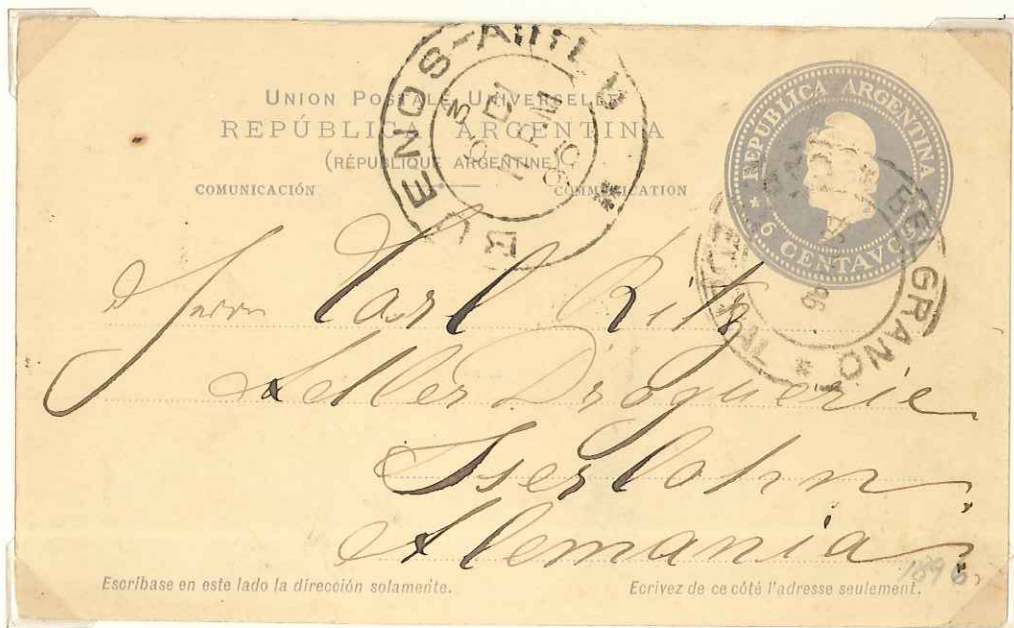 UNION POSTALE UNIVERSELLE
REPÚBLICA ARGENTINA
(RÉPUBLIQUE ARGENTINE)
COMUNICACIÓN COMMUNICATION
BUENOS-AIRES
REPUBLICA ARGENTINA
6 CENTAVOS
BELGRANO
96
Herrn Carl Ritz
Letller Droguerie
Iserlohn
Alemania
1896
Escríbase en este lado la dirección solamente. Ecrivez de ce côté l'adresse seulement.